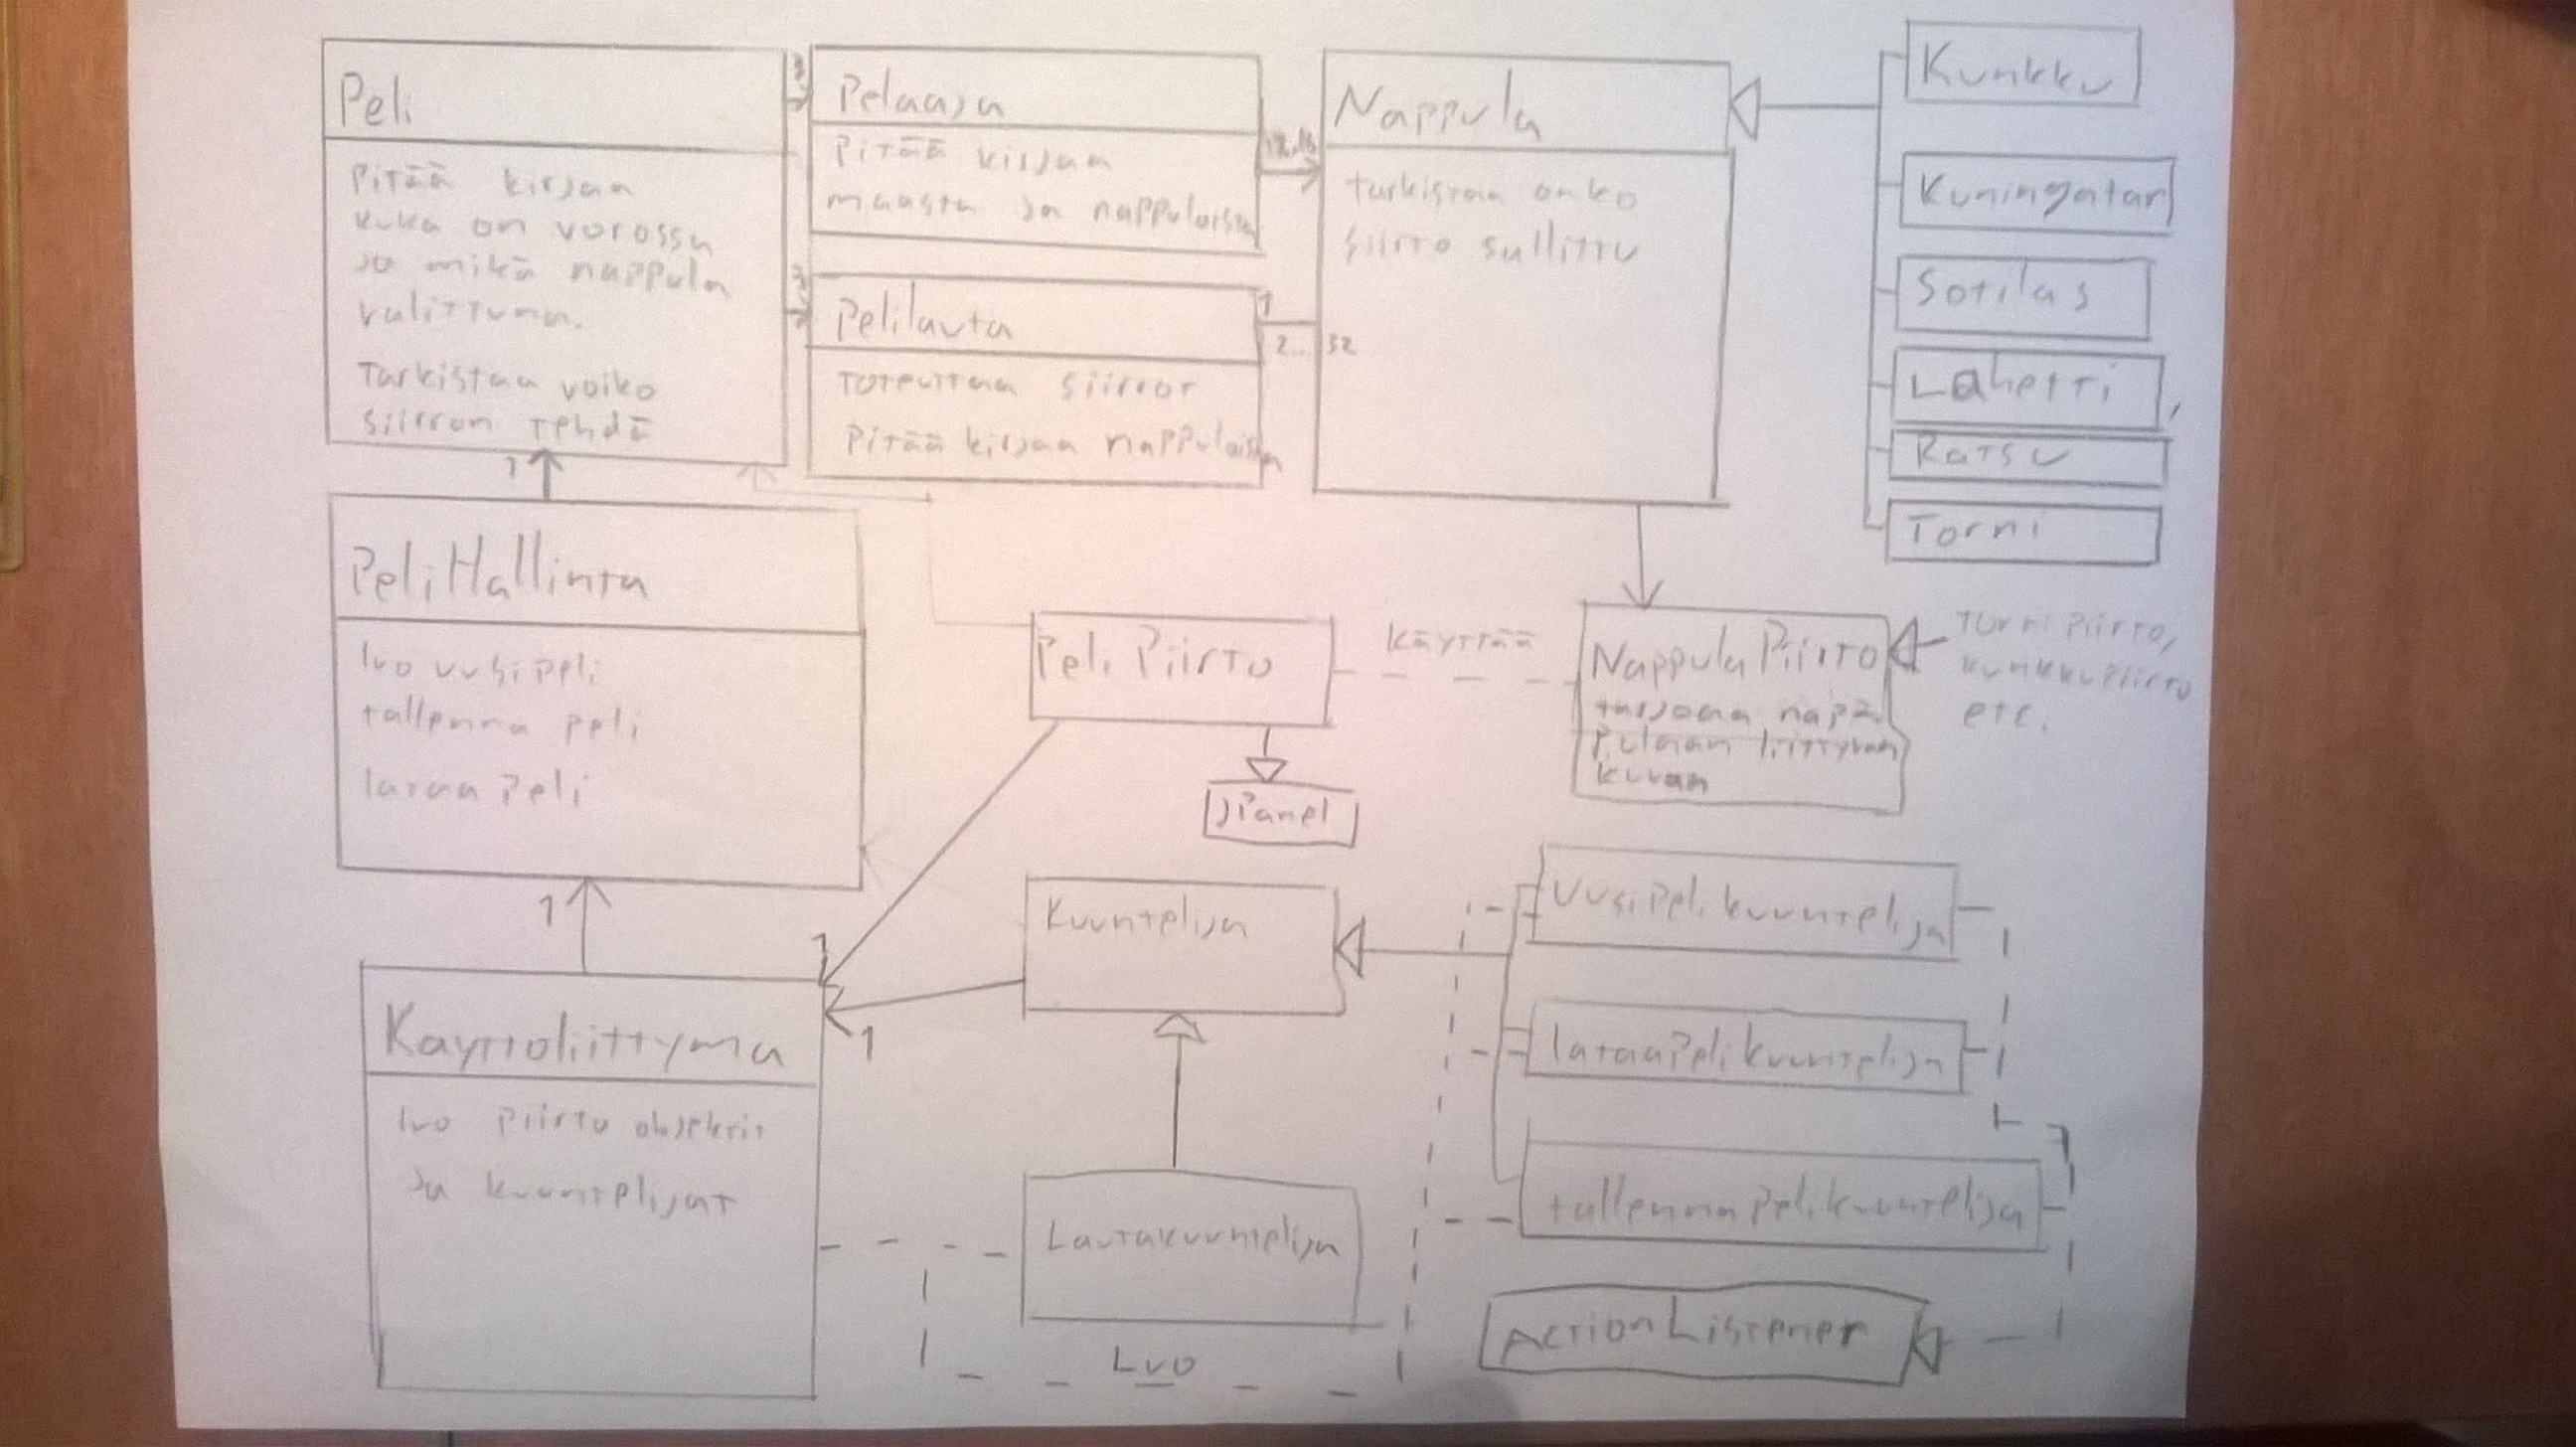 Peli
Pitää kirjaa
kuka on vorossa
ja mikä nappula
valittuna.
Tarkistaa voiko
siirron tehdä
3
Pelaaja
Pitää kirjaa
maasta ja nappuloista
3
Pelilauta
Toteuttaa siirrot
Pitää kirjaa nappuloista
1
2.. 32
Nappula
tarkistaa onko
siirto sallittu
Kunkku
Kuningatar
Sotilas
Lähetti
Ratsu
Torni
1
PeliHallinta
luo uusi peli
tallenna peli
lataa peli
Peli Piirto
käyttää
Nappula Piirto
tarjoaa nap
pulaan liittyvän
kuvan
Torni Piirto,
kunkkupiirto
etc.
JPanel
1
1
1
Käyttoliittyma
luo piirto objektit
ja kuuntelijat
Kuuntelija
Lautakuuntelija
Luo
Uusi Peli kuuntelija
lataaPeli kuuntelija
tallenna peli kuuntelija
Action Listener